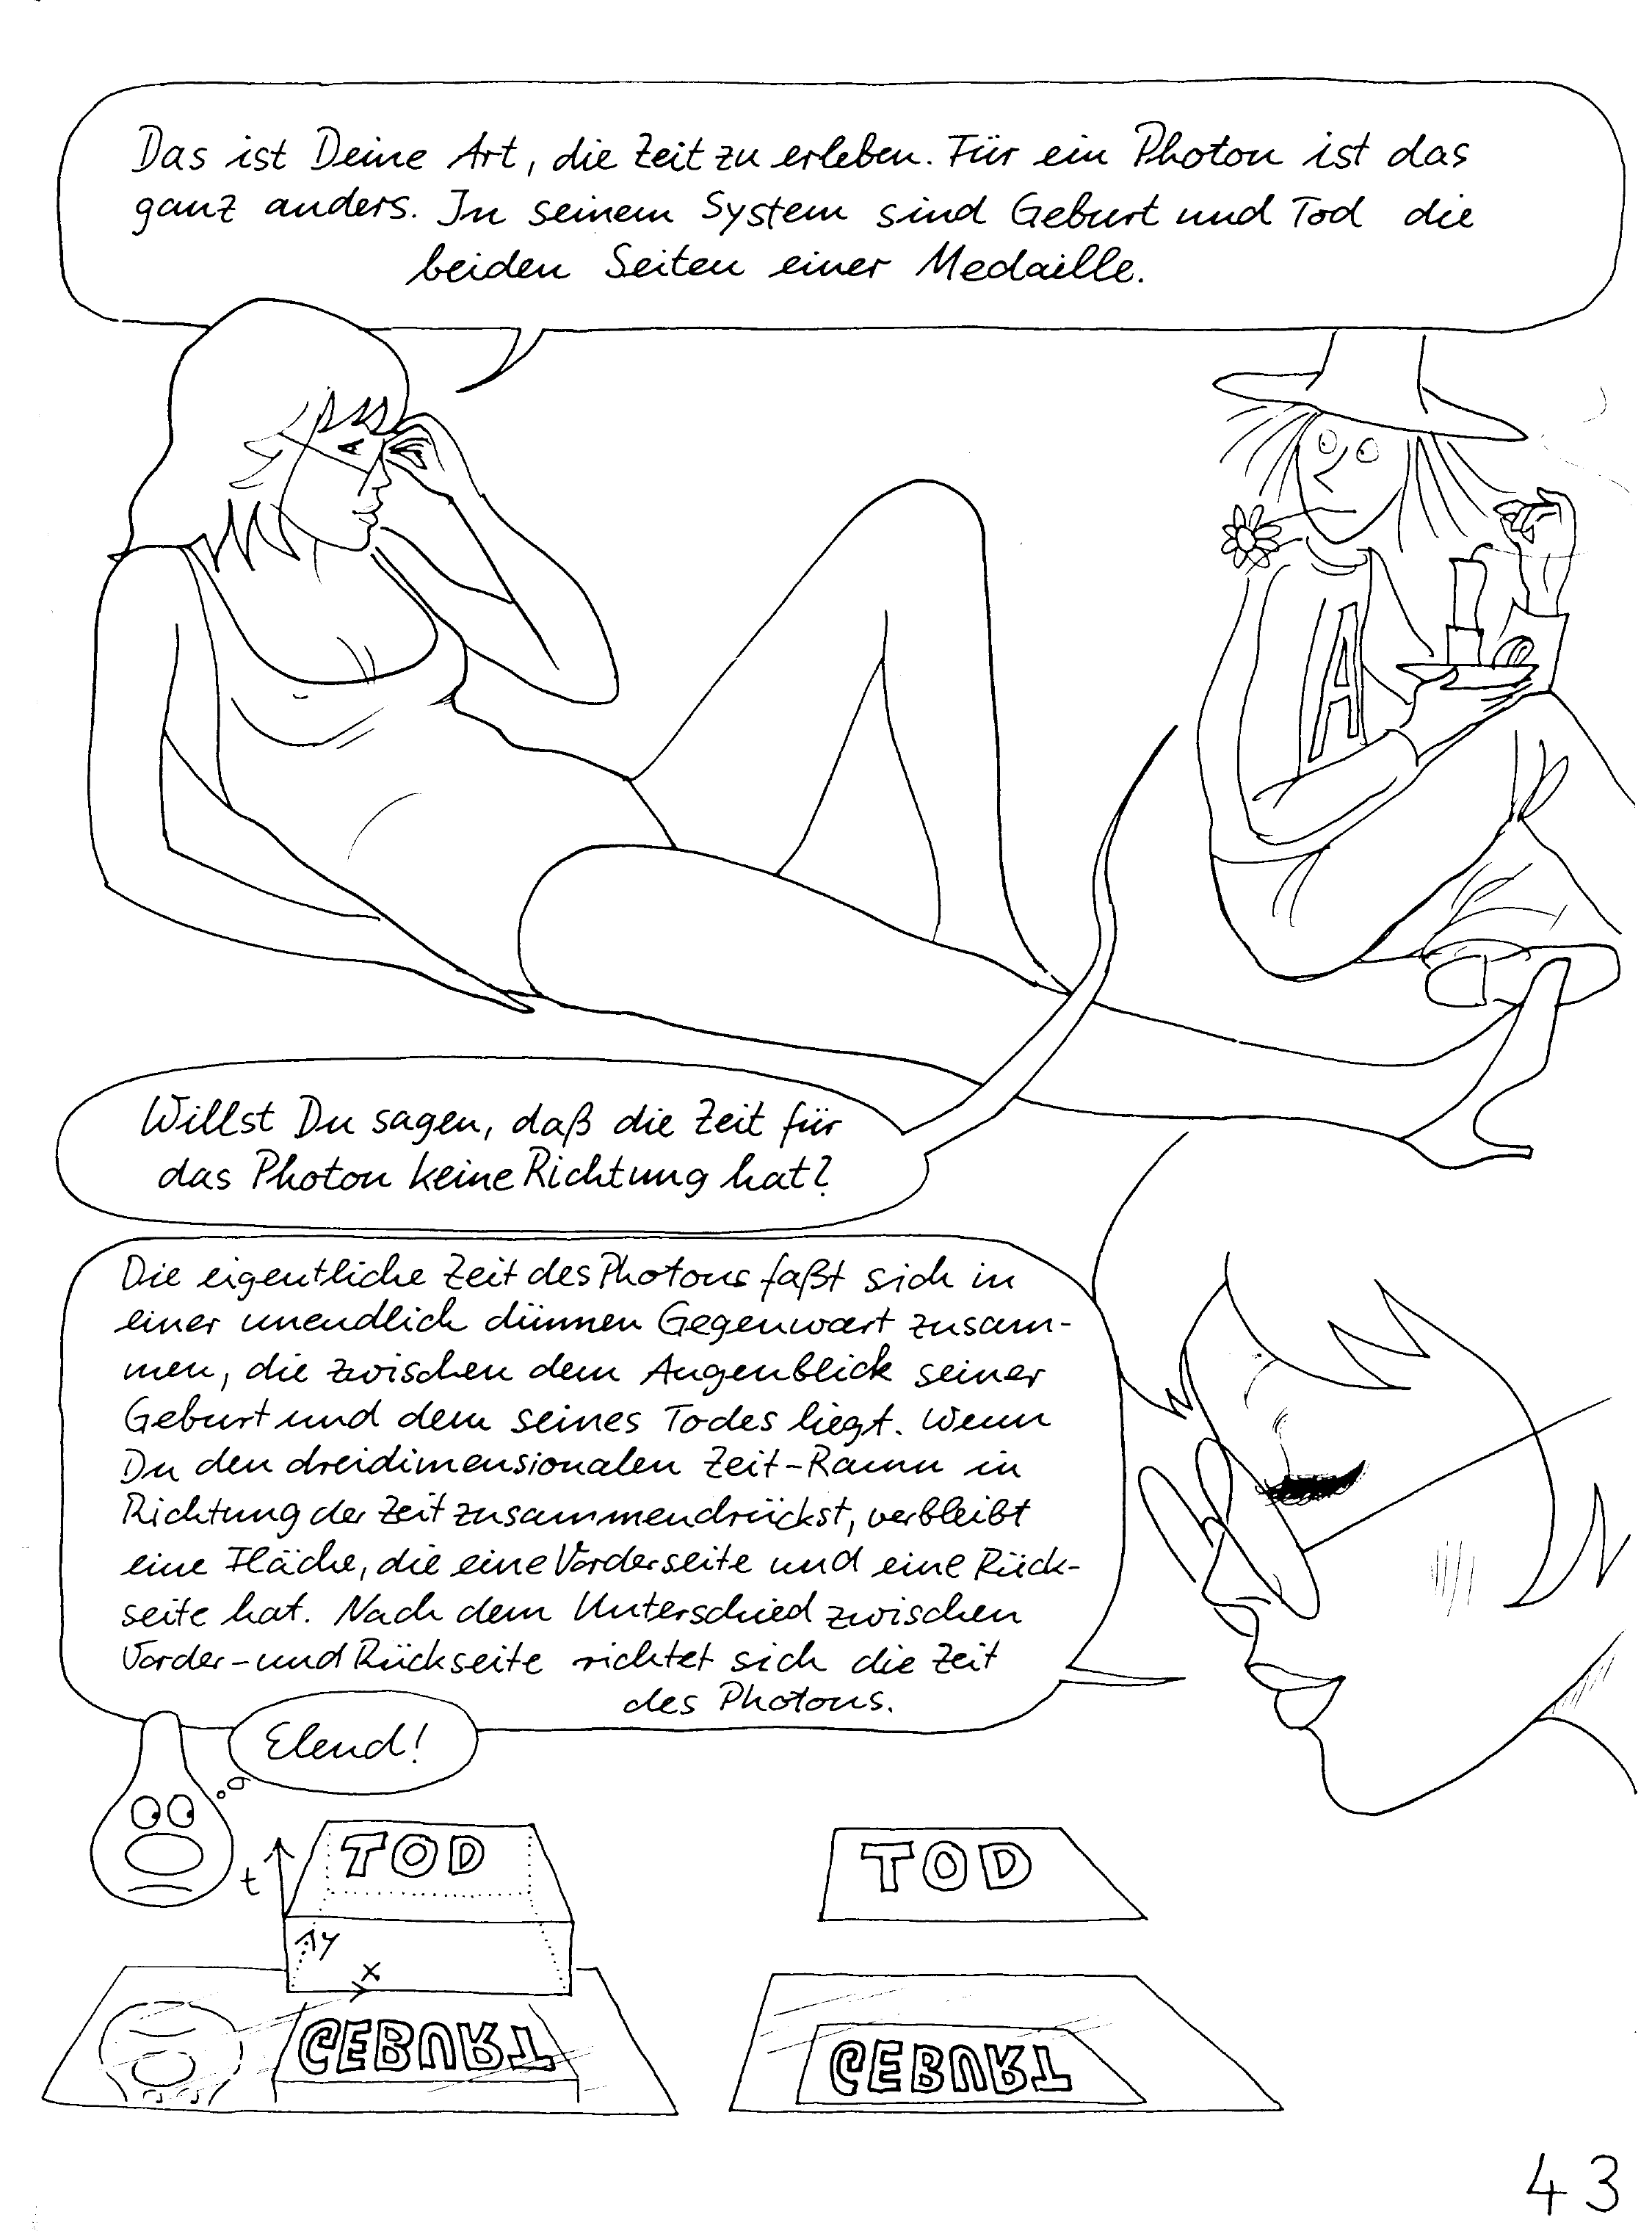 Das ist Deine Art, die Zeit zu erleben. Für ein Photon ist das
ganz anders. In seinem System sind Geburt und Tod die
beiden Seiten einer Medaille.
A
Willst Du sagen, daß die Zeit für
das Photon keine Richtung hat?
Die eigentliche Zeit des Photons faßt sich in
einer unendlich dünnen Gegenwart zusam-
men, die zwischen dem Augenblick seiner
Geburt und dem seines Todes liegt. Wenn
Du den dreidimensionalen Zeit-Raum in
Richtung der Zeit zusammendrückst, verbleibt
eine Fläche, die eine Vorderseite und eine Rück-
seite hat. Nach dem Unterschied zwischen
Vorder- und Rückseite richtet sich die Zeit
des Photons.
Elend!
t
TOD
y
x
GEBURT
TOD
GEBURT
43